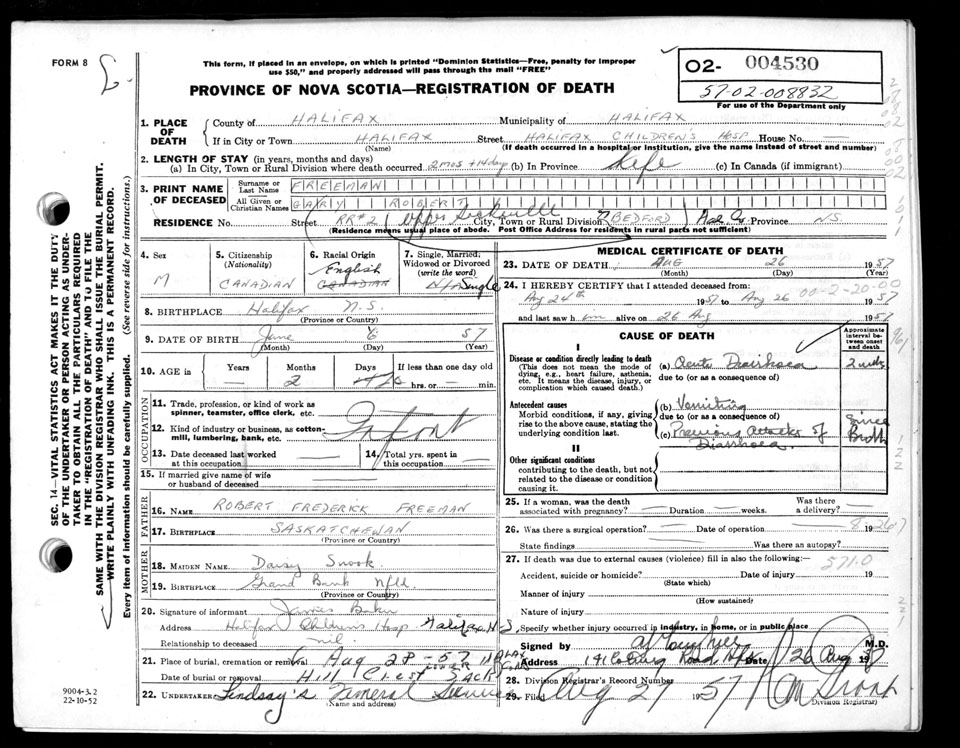 FORM 8
This form, if placed in an envelope, on which is printed "Dominion Statistics—Free, penalty for improper
use $50," and properly addressed will pass through the mail "FREE"
PROVINCE OF NOVA SCOTIA—REGISTRATION OF DEATH
O2- 004530
57-02-008832
For use of the Department only
1. PLACE OF DEATH
County of HALIFAX Municipality of HALIFAX
If in City or Town HALIFAX Street HALIFAX CHILDREN'S HOSP House No. —
(Name) (If death occurred in a hospital or institution, give the name instead of street and number)
2. LENGTH OF STAY (in years, months and days)
(a) In City, Town or Rural Division where death occurred 2 mos + 14 days (b) In Province Life (c) In Canada (if immigrant)
3. PRINT NAME OF DECEASED
Surname or Last Name FREEMAN
All Given or Christian Names GARY ROBERT
RESIDENCE No. Street RR#2 Upper Sackville City, Town or Rural Division BEDFORD Province N.S.
(Residence means usual place of abode. Post Office Address for residents in rural parts not sufficient)
4. Sex M
5. Citizenship (Nationality) CANADIAN
6. Racial Origin English CANADIAN
7. Single, Married, Widowed or Divorced (write the word) Single
8. BIRTHPLACE Halifax N.S.
(Province or Country)
9. DATE OF BIRTH June 6 57
(Month) (Day) (Year)
10. AGE in Years Months 2 Days If less than one day old — hrs. or — min.
OCCUPATION
11. Trade, profession, or kind of work as spinner, teamster, office clerk, etc.
12. Kind of industry or business, as cotton-mill, lumbering, bank, etc.
Infant
13. Date deceased last worked at this occupation —
14. Total yrs. spent in this occupation —
15. If married give name of wife or husband of deceased —
FATHER
16. NAME ROBERT FREDERICK FREEMAN
17. BIRTHPLACE SASKATCHEWAN
(Province or Country)
MOTHER
18. MAIDEN NAME Daisy Snook
19. BIRTHPLACE Grand Bank Nfld
(Province or Country)
20. Signature of informant James Baker
Address Halifax Children's Hosp Halifax N.S.
Relationship to deceased nil
21. Place of burial, cremation or removal
Date of burial or removal
Aug 28-57
Hill Crest
22. UNDERTAKER Lindsay's Funeral Service
(Name and address)
MEDICAL CERTIFICATE OF DEATH
23. DATE OF DEATH Aug 26 1957
(Month) (Day) (Year)
24. I HEREBY CERTIFY that I attended deceased from:
Aug 24th 1957 to Aug 26 1957
00-2-20-00
and last saw him alive on 26 Aug 1957
CAUSE OF DEATH
Approximate interval between onset and death
I
Disease or condition directly leading to death
(This does not mean the mode of dying, e.g., heart failure, asthenia, etc. It means the disease, injury, or complication which caused death.)
(a) Acute Diarrhoea 2 wks
due to (or as a consequence of)
Antecedent causes
Morbid conditions, if any, giving rise to the above cause, stating the underlying condition last.
(b) Vomiting
due to (or as a consequence of)
(c) Previous attacks of Diarrhoea Since Birth
II
Other significant conditions
contributing to the death, but not related to the disease or condition causing it.
25. If a woman, was the death associated with pregnancy? — Duration — weeks. Was there a delivery? —
26. Was there a surgical operation? — Date of operation — 19
State findings — Was there an autopsy?
27. If death was due to external causes (violence) fill in also the following:—
571.0
Accident, suicide or homicide? Date of injury 19
(State which)
Manner of injury
(How sustained)
Nature of injury
Specify whether injury occurred in industry, in home, or in public place
Signed by M.D.
Address Date 26 Aug 1957
28. Division Registrar's Record Number
29. Filed Aug 27 1957
Division Registrar
SEC. 14—VITAL STATISTICS ACT MAKES IT THE DUTY
OF THE UNDERTAKER OR PERSON ACTING AS UNDER-
TAKER TO OBTAIN ALL THE PARTICULARS REQUIRED
IN THE "REGISTRATION OF DEATH" AND TO FILE THE
SAME WITH THE DIVISION REGISTRAR WHO SHALL ISSUE THE BURIAL PERMIT.
WRITE PLAINLY WITH UNFADING INK. THIS IS A PERMANENT RECORD.
Every item of information should be carefully supplied. (See reverse side for instructions.)
9004-3.2
22-10-52